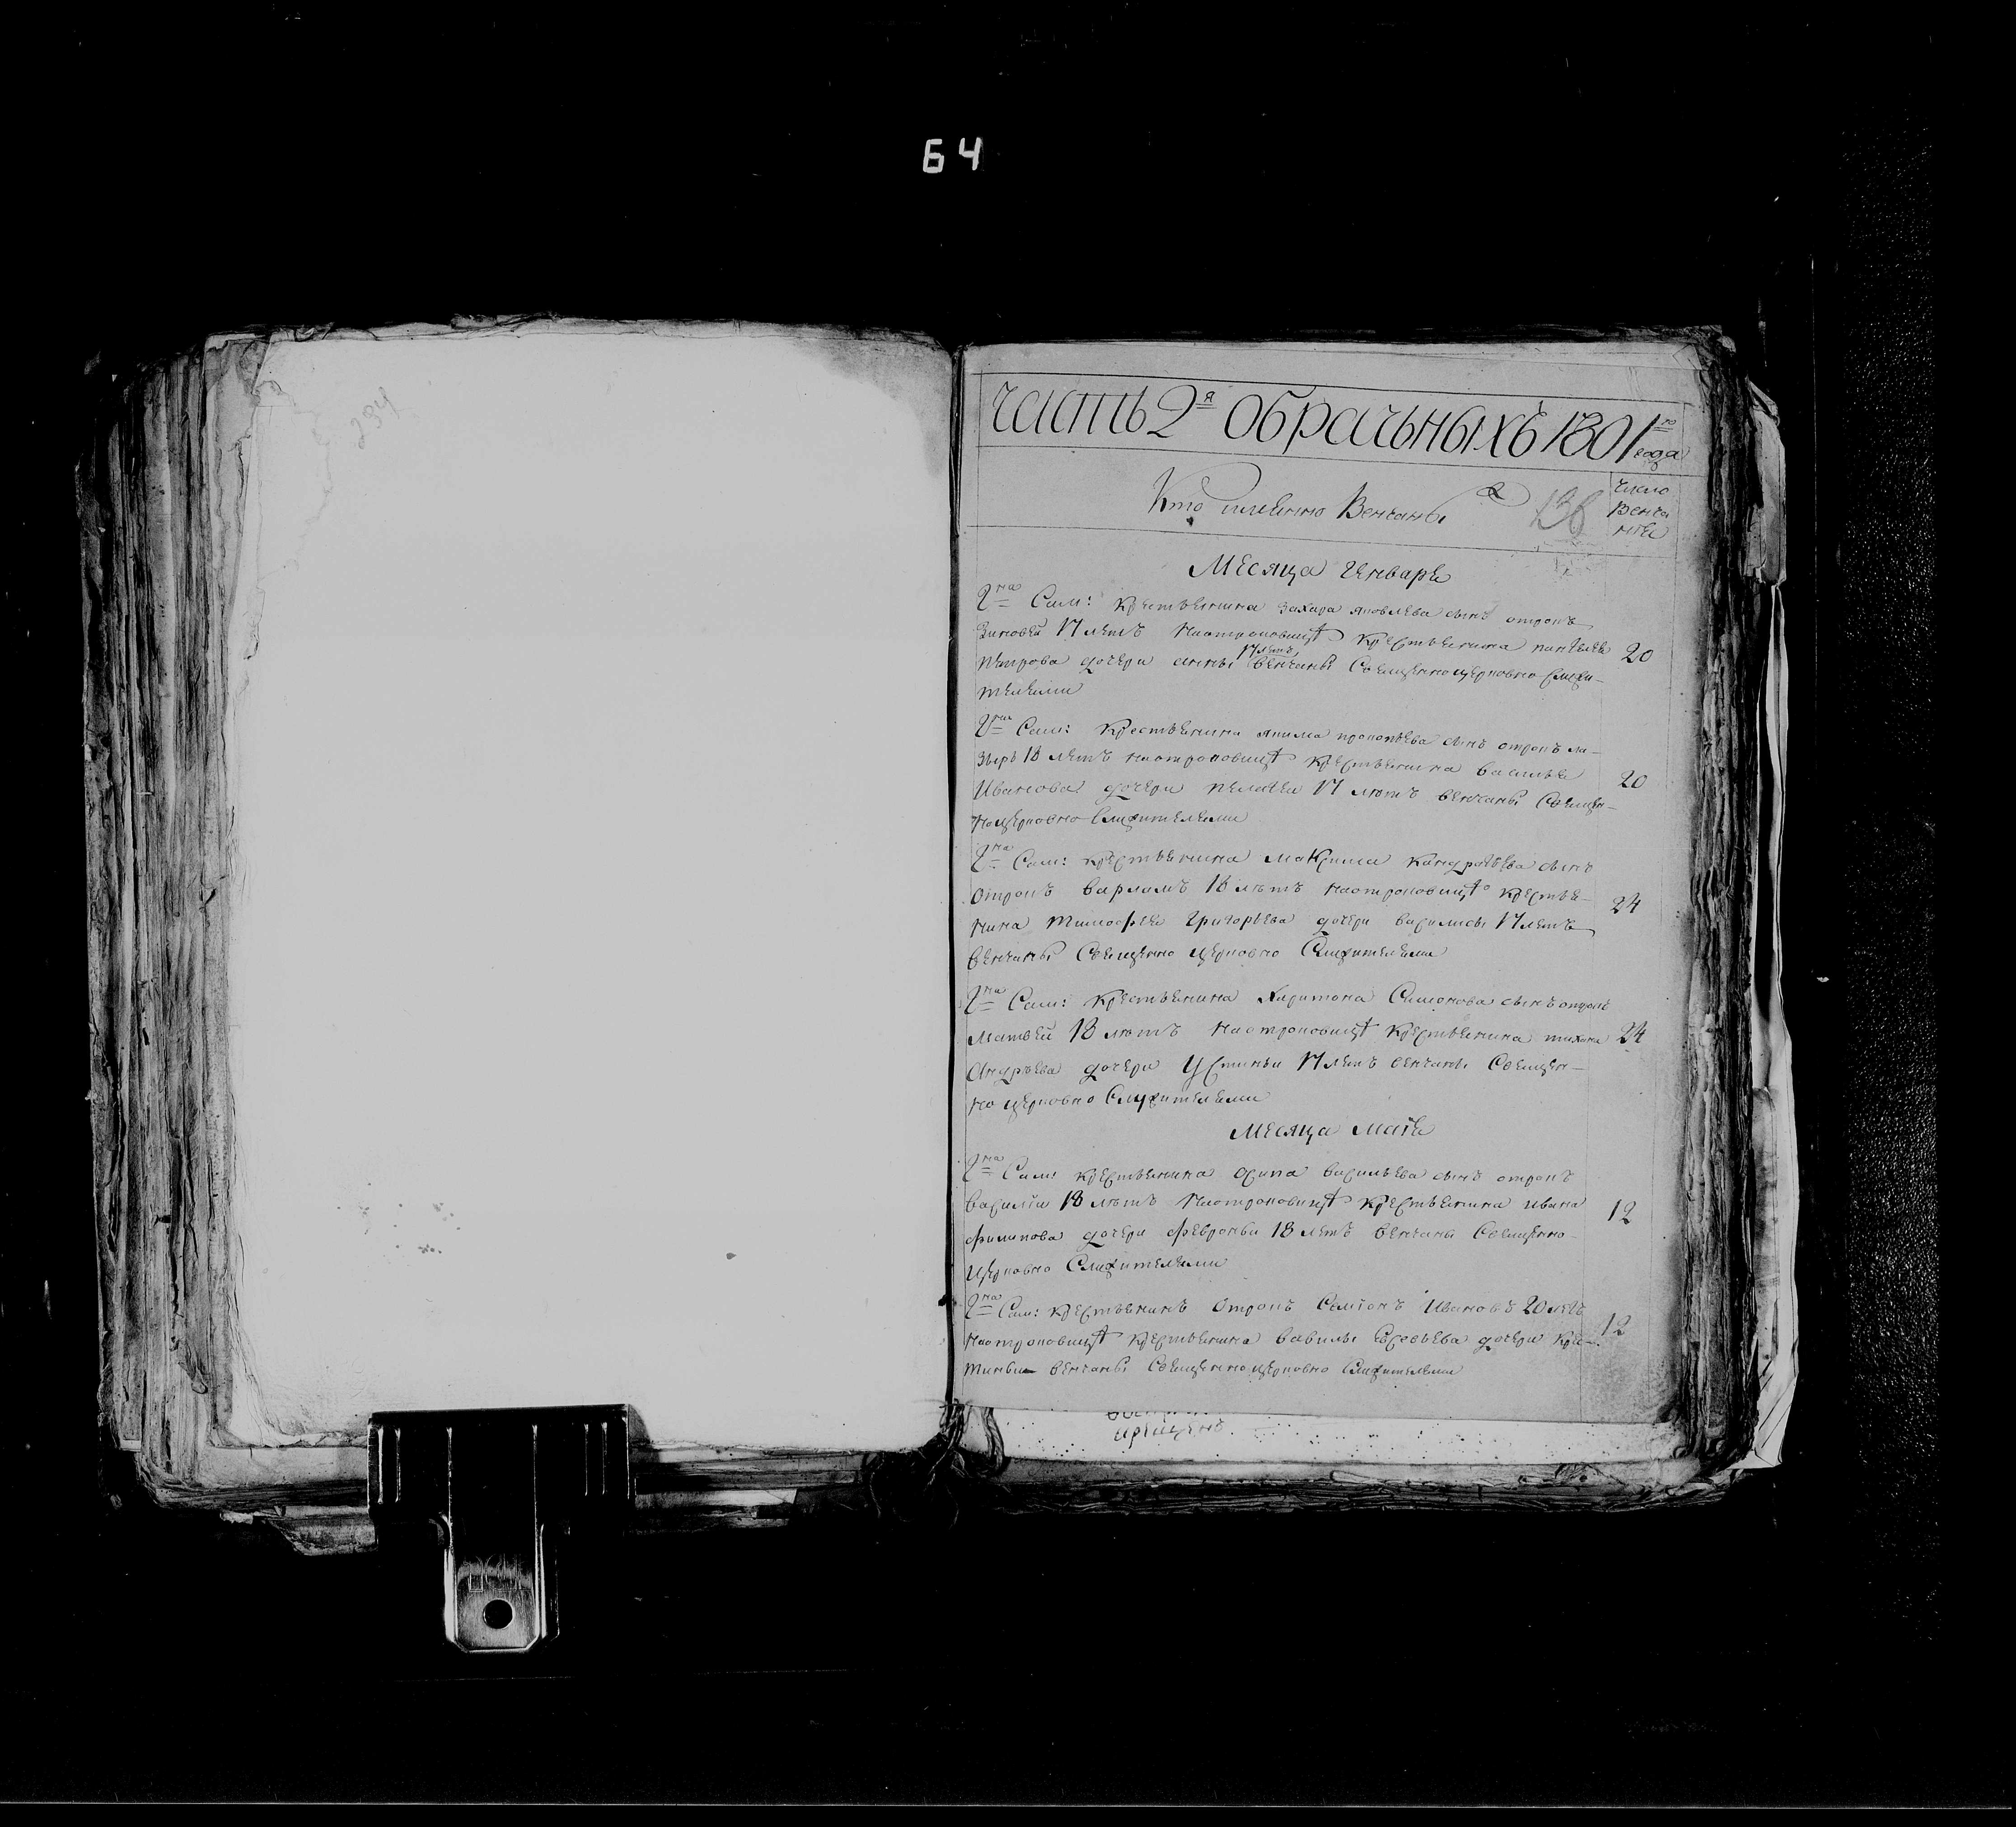 64
234
часть 2я обрачьныхъ 1801го года
Кто имянно Венчаны
136
число
Венча
нїя
Месяца Генваря
2на Сам: крестьянина захара яковлева сынъ отрокъ
Зиновей 17 летъ наотроковице крестьянина пантелея 20
петрова дочери анны 17 летъ венчаны Священноцерковно Служи-
телями
Сам: крестьянина якима прокопьева сынъ отрокъ ла-
зырь 18 летъ наотроковице крестьянина василья
Иванова дочери пелагеи 17 летъ венчаны Священ- 20
ноцерковно Служителями
2на Сам: крестьянина максима кандратьева сынъ
отрокъ варламъ 18 летъ наотроковице крестья- 24
нина тимофея григорьева дочери василисы 17 летъ
венчаны Священно церковно Служителями
2на Сам: крестьянина Харитона Симонова сынъ отрокъ
матвей 18 летъ наотроковице крестьянина тихана 24
Андреева дочери устиньи 17 летъ венчаны Священ-
но церковно Служителями
Месяца маїя
2на Сам: крестьянина осипа васильева сынъ отрокъ
василїи 18 летъ наотроковице крестьянина ивана 12
филипова дочери февроньи 18 летъ венчаны Священно-
церковно Служителями
2на Сам: крестьянинъ отрокъ Семїонъ Ивановъ 20 летъ
наотроковице крестьянина вавилы дочери 12
венчаны Священноцерковно Служителями